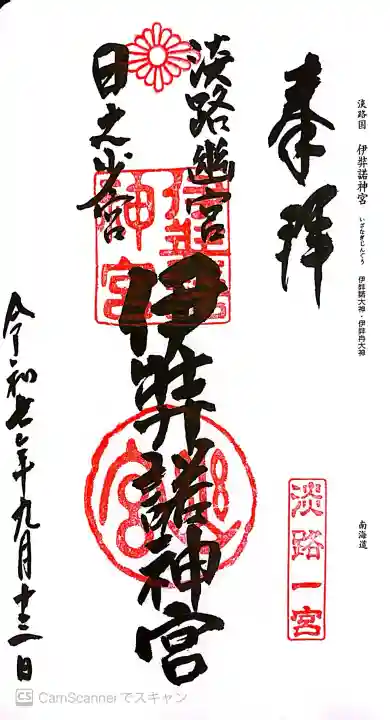 淡路国 伊弉諾神宮 いざなぎじんぐう 伊弉諾大神・伊弉冉大神
南海道
奉拝
淡路一宮
淡路幽宮
日之少宮
伊弉諾神宮
伊弉諾神宮
令和七年九月十三日
CS CamScannerでスキャン